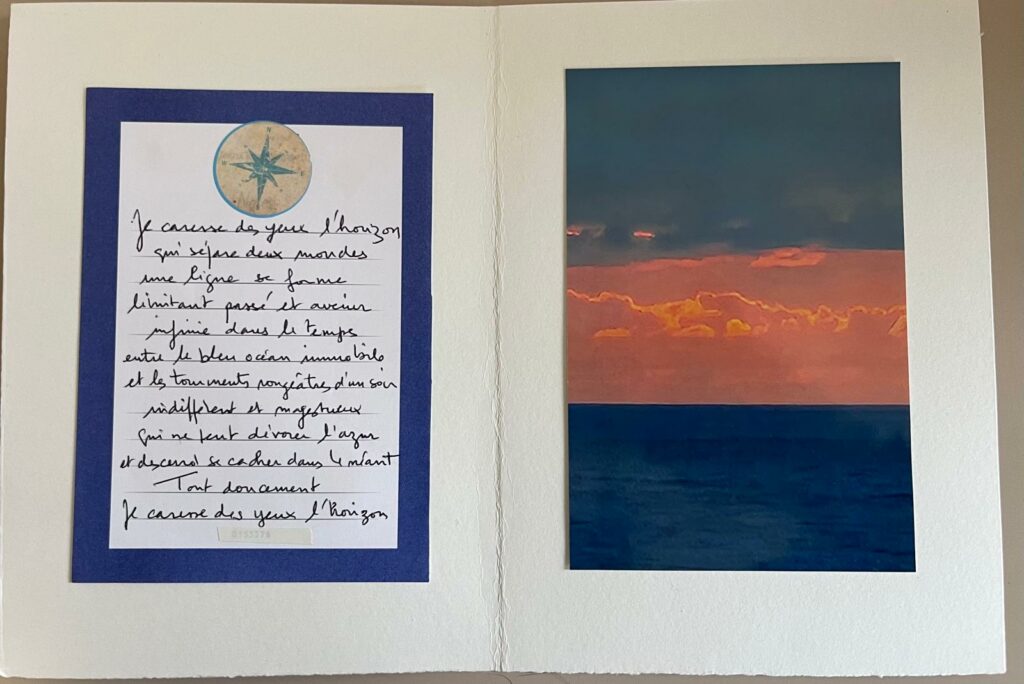 N
W
E
S
Je caresse des yeux l'horizon
qui sépare deux mondes
une ligne se forme
limitant passé et avenir
infinie dans le temps
entre le bleu océan immobile
et les tourments rougeâtres d'un soir
indifférent et magestueux
qui ne peut dévorer l'azur
et descend se cacher dans le néant
Tout doucement
Je caresse des yeux l'horizon